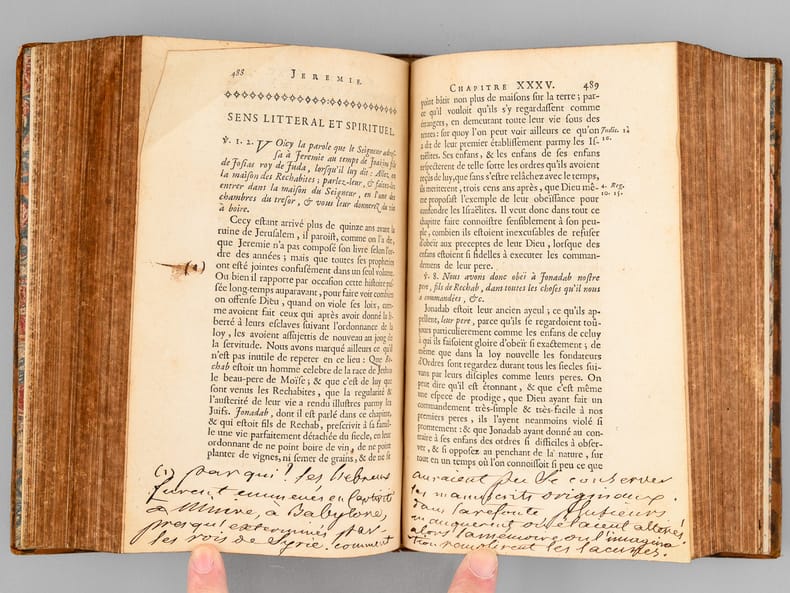 488 JEREMIE.
SENS LITTERAL ET SPIRITUEL.
℣. 1. 2. VOicy la parole que le Seigneur adres-
sa à Jeremie au temps de Joakim fils
de Josias roy de Juda, lorsqu'il luy dit: Allez en
la maison des Rechabites; parlez-leur, & faites-les
entrer dans la maison du Seigneur, en l'une des
chambres du tresor, & vous leur donnerez du vin
à boire.
Cecy estant arrivé plus de quinze ans avant la
ruine de Jerusalem, il paroist, comme on l'a dit,
que Jeremie n'a pas composé son livre selon l'or-
dre des années; mais que toutes ses propheties
ont esté jointes confusément dans un seul volume.
Ou bien il rapporte par occasion cette histoire pas-
sée long-temps auparavant, pour faire voir combien
on offense Dieu, quand on viole ses loix, com-
me avoient fait ceux qui après avoir donné la li-
berté à leurs esclaves suivant l'ordonnance de la
loy, les avoient assujettis de nouveau au joug de
la servitude. Nous avons marqué ailleurs ce qu'il
n'est pas inutile de repeter en ce lieu: Que Re-
chab estoit un homme celebre de la race de Jethro
le beau-pere de Moïse; & que c'est de luy que
sont venus les Rechabites, que la regularité &
l'austerité de leur vie a rendu illustres parmy les
Juifs. Jonadab, dont il est parlé dans ce chapitre,
& qui estoit fils de Rechab, prescrivit à sa famil-
le une vie parfaitement détachée du siecle, en leur
ordonnant de ne point boire de vin, de ne point
planter de vignes, ni semer de grains, & de ne se
(1) par qui? les hebreux
furent emmenés en captivité
à Ninive, à Babylone,
presqu'exterminés par
les rois de Syrie. comment
CHAPITRE XXXV. 489
point bâtir non plus de maisons sur la terre; par-
ce qu'il vouloit qu'ils s'y regardassent comme
étrangers, en demeurant toute leur vie sous des
tentes: sur quoy l'on peut voir ailleurs ce qu'on
a dit de leur premier établissement parmy les Is-
raëlites. Ses enfans, & les enfans de ses enfans
respecterent de telle sorte les ordres qu'ils avoient
reçûs de luy, que sans s'estre relâchez avec le temps,
ils meriterent, trois cens ans après, que Dieu mê-
me proposast l'exemple de leur obeïssance pour
confondre les Israëlites. Il veut donc dans tout ce
chapitre faire connoistre sensiblement à son peu-
ple, combien ils estoient inexcusables de refuser
d'obeïr aux preceptes de leur Dieu, lorsque des
enfans estoient si fidelles à executer les comman-
demens de leur pere.
℣. 8. Nous avons donc obeï à Jonadab nostre
pere, fils de Rechab, dans toutes les choses qu'il nous
a commandées, &c.
Jonadab estoit leur ancien ayeul; ce qu'ils ap-
pellent, leur pere, parce qu'ils se regardoient toû-
jours particulierement comme les enfans de celuy
à qui ils faisoient gloire d'obeïr si exactement; de
même que dans la loy nouvelle les fondateurs
d'Ordres sont regardez durant tous les siecles sui-
vans par leurs disciples comme leurs peres. On
peut dire qu'il est étonnant, & que c'est même
une espece de prodige, que Dieu ayant fait un
commandement très-simple & très-facile à nos
premiers peres, ils l'ayent neanmoins violé si
promtement: & que Jonadab ayant donné au con-
traire à ses enfans des ordres si difficiles à obser-
ver, & si opposez au penchant de la nature, sur
tout en un temps où l'on connoissoit si peu ce que
Judic. 1.
16.
4. Reg.
10. 15.
auraient pu se conserver
les manuscrits originaux.
dans la refonte plusieurs
manquerent ou etaient alterés!
alors la memoire ou l'imagina
tion remplirent les lacunes.